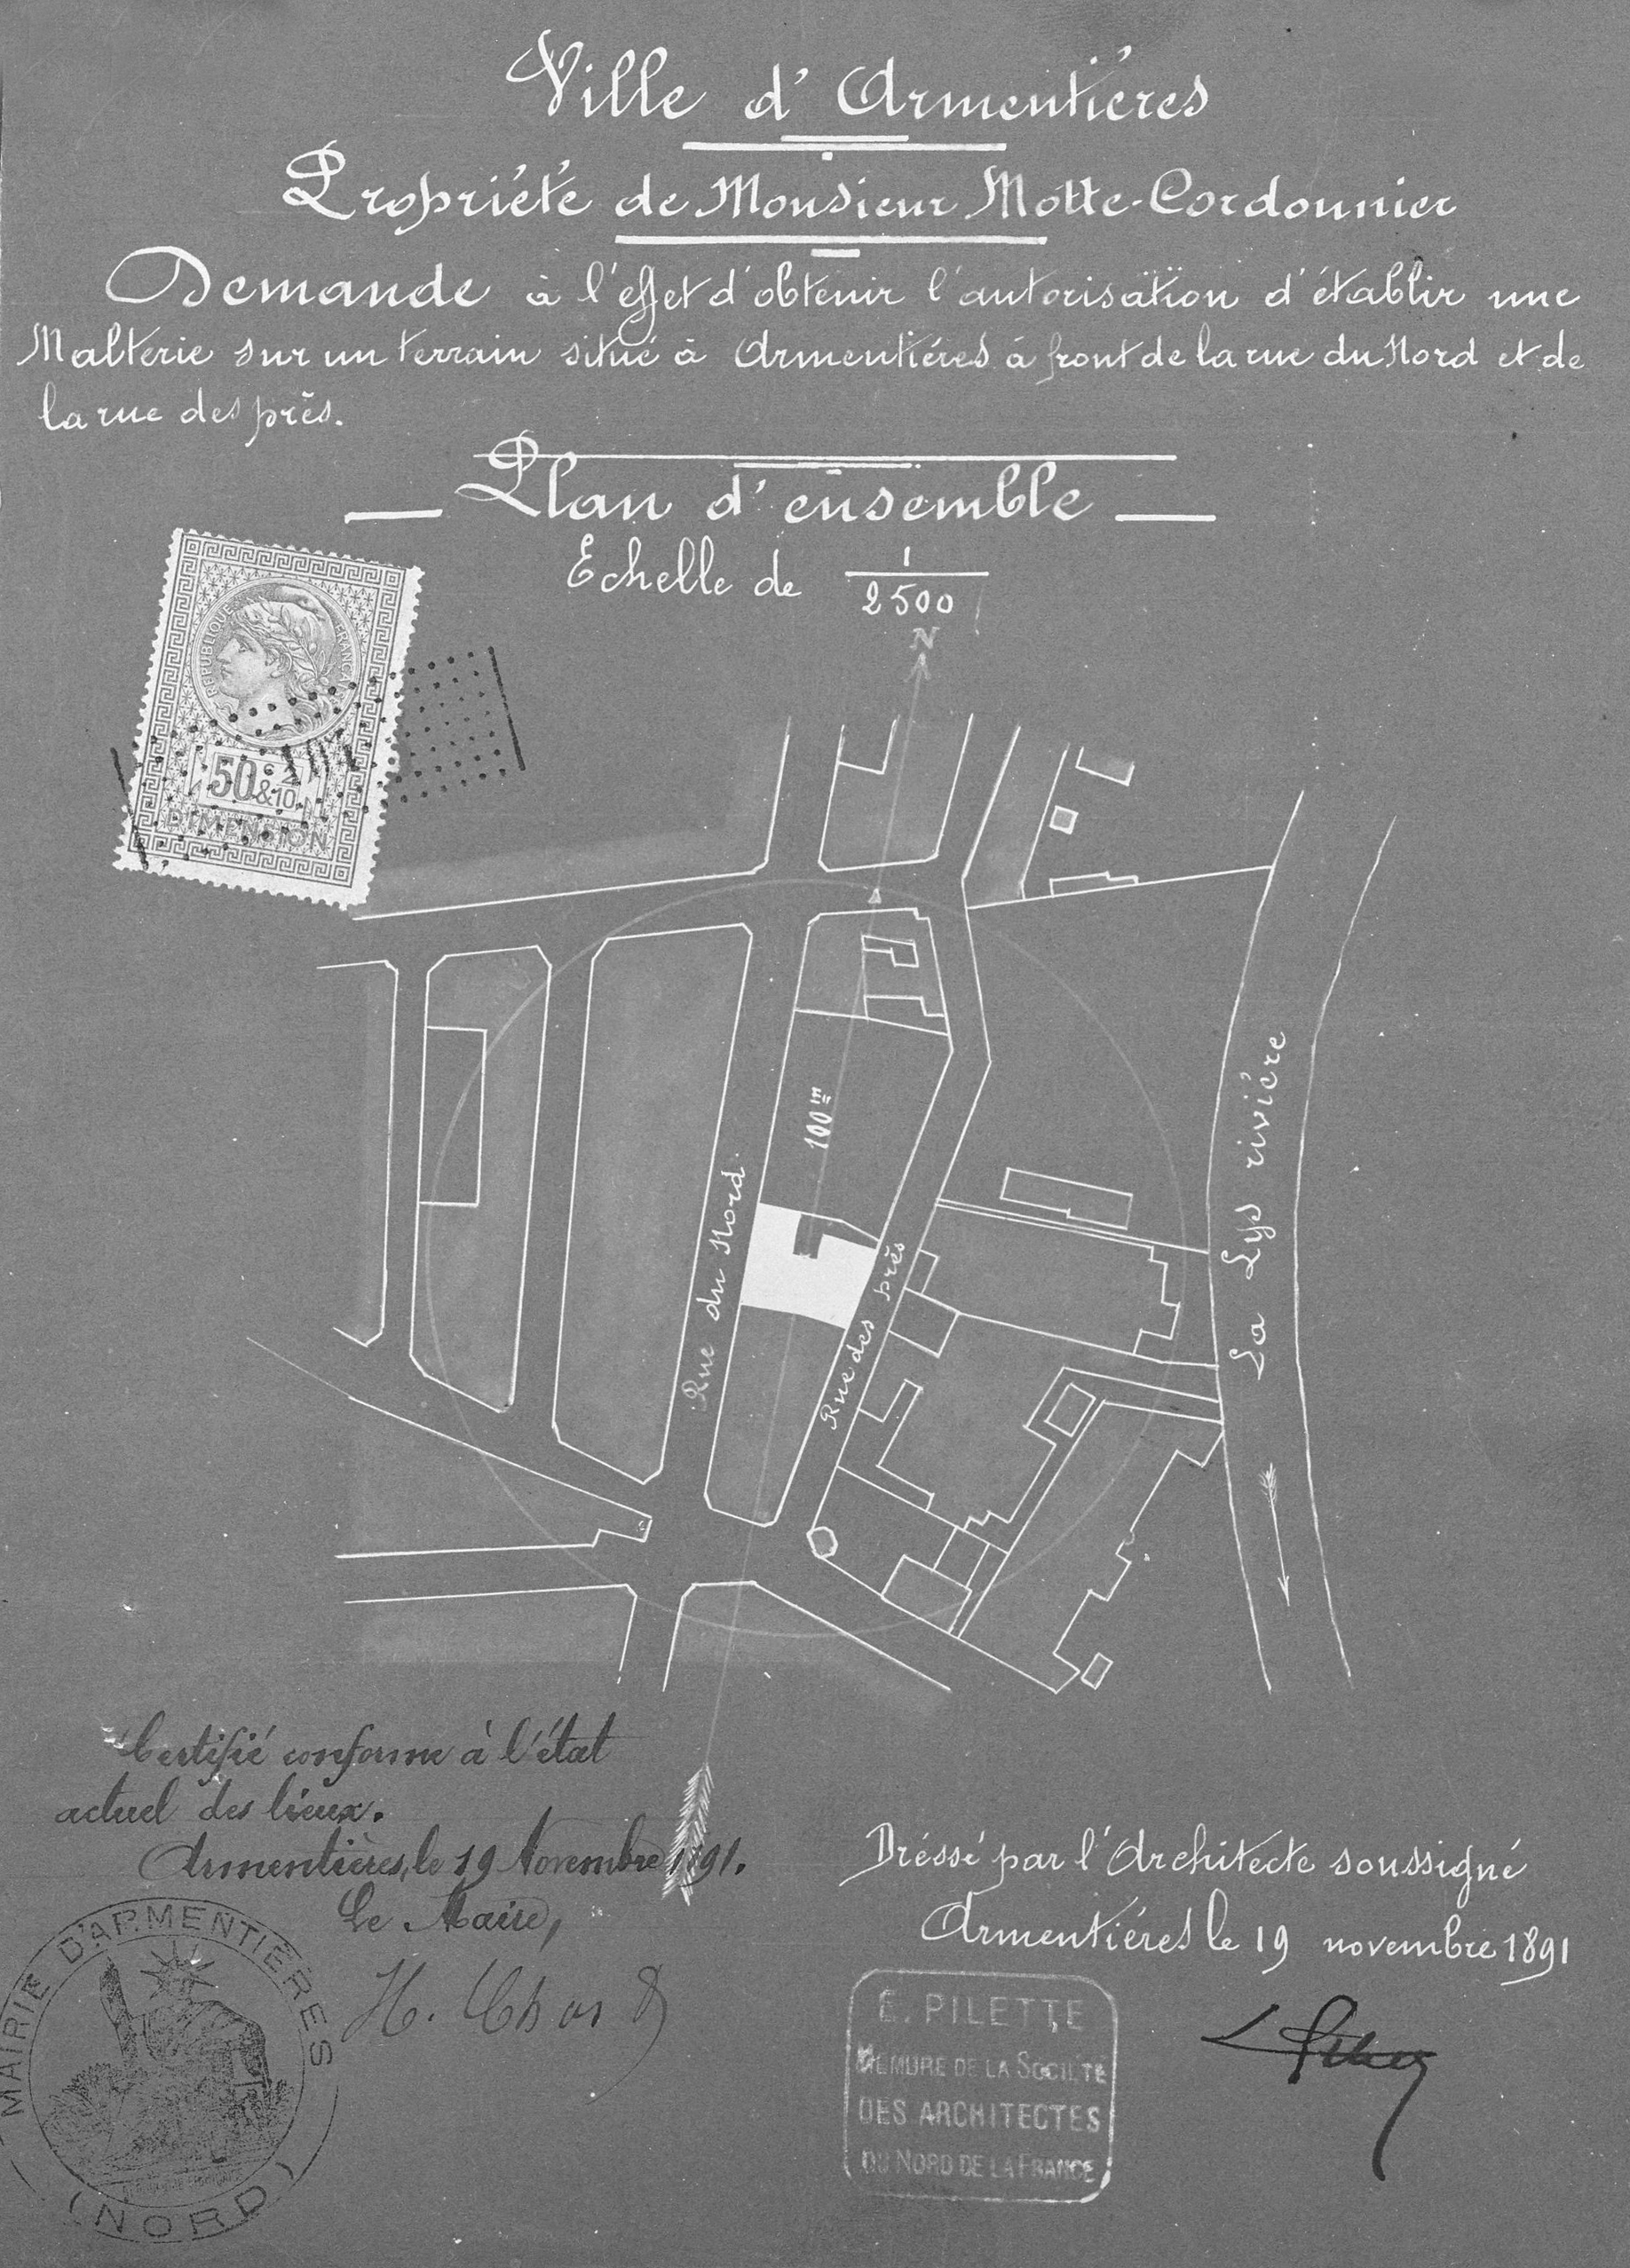 Ville d'Armentiéres
Propriété de Monsieur Motte-Cordonnier
Demande à l'effet d'obtenir l'autorisation d'établir une
Malterie sur un terrain situé à Armentiéres à front de la rue du Nord et de
la rue des près.
Plan d'ensemble
Echelle de 1/2500
REPUBLIQUE FRANÇAISE
50c &
2/10
DIMENSION
N
100m
Rue du Nord.
Rue des près
La Lys riviére
Certifié conforme à l'état
actuel des lieux.
Armentières, le 19 Novembre 1891.
Le Maire,
MAIRIE D'ARMENTIÈRES
(NORD)
Dréssé par l'Architecte soussigné
Armentiéres le 19 novembre 1891
E. PILETTE
MEMBRE DE LA SOCIÉTÉ
DES ARCHITECTES
DU NORD DE LA FRANCE